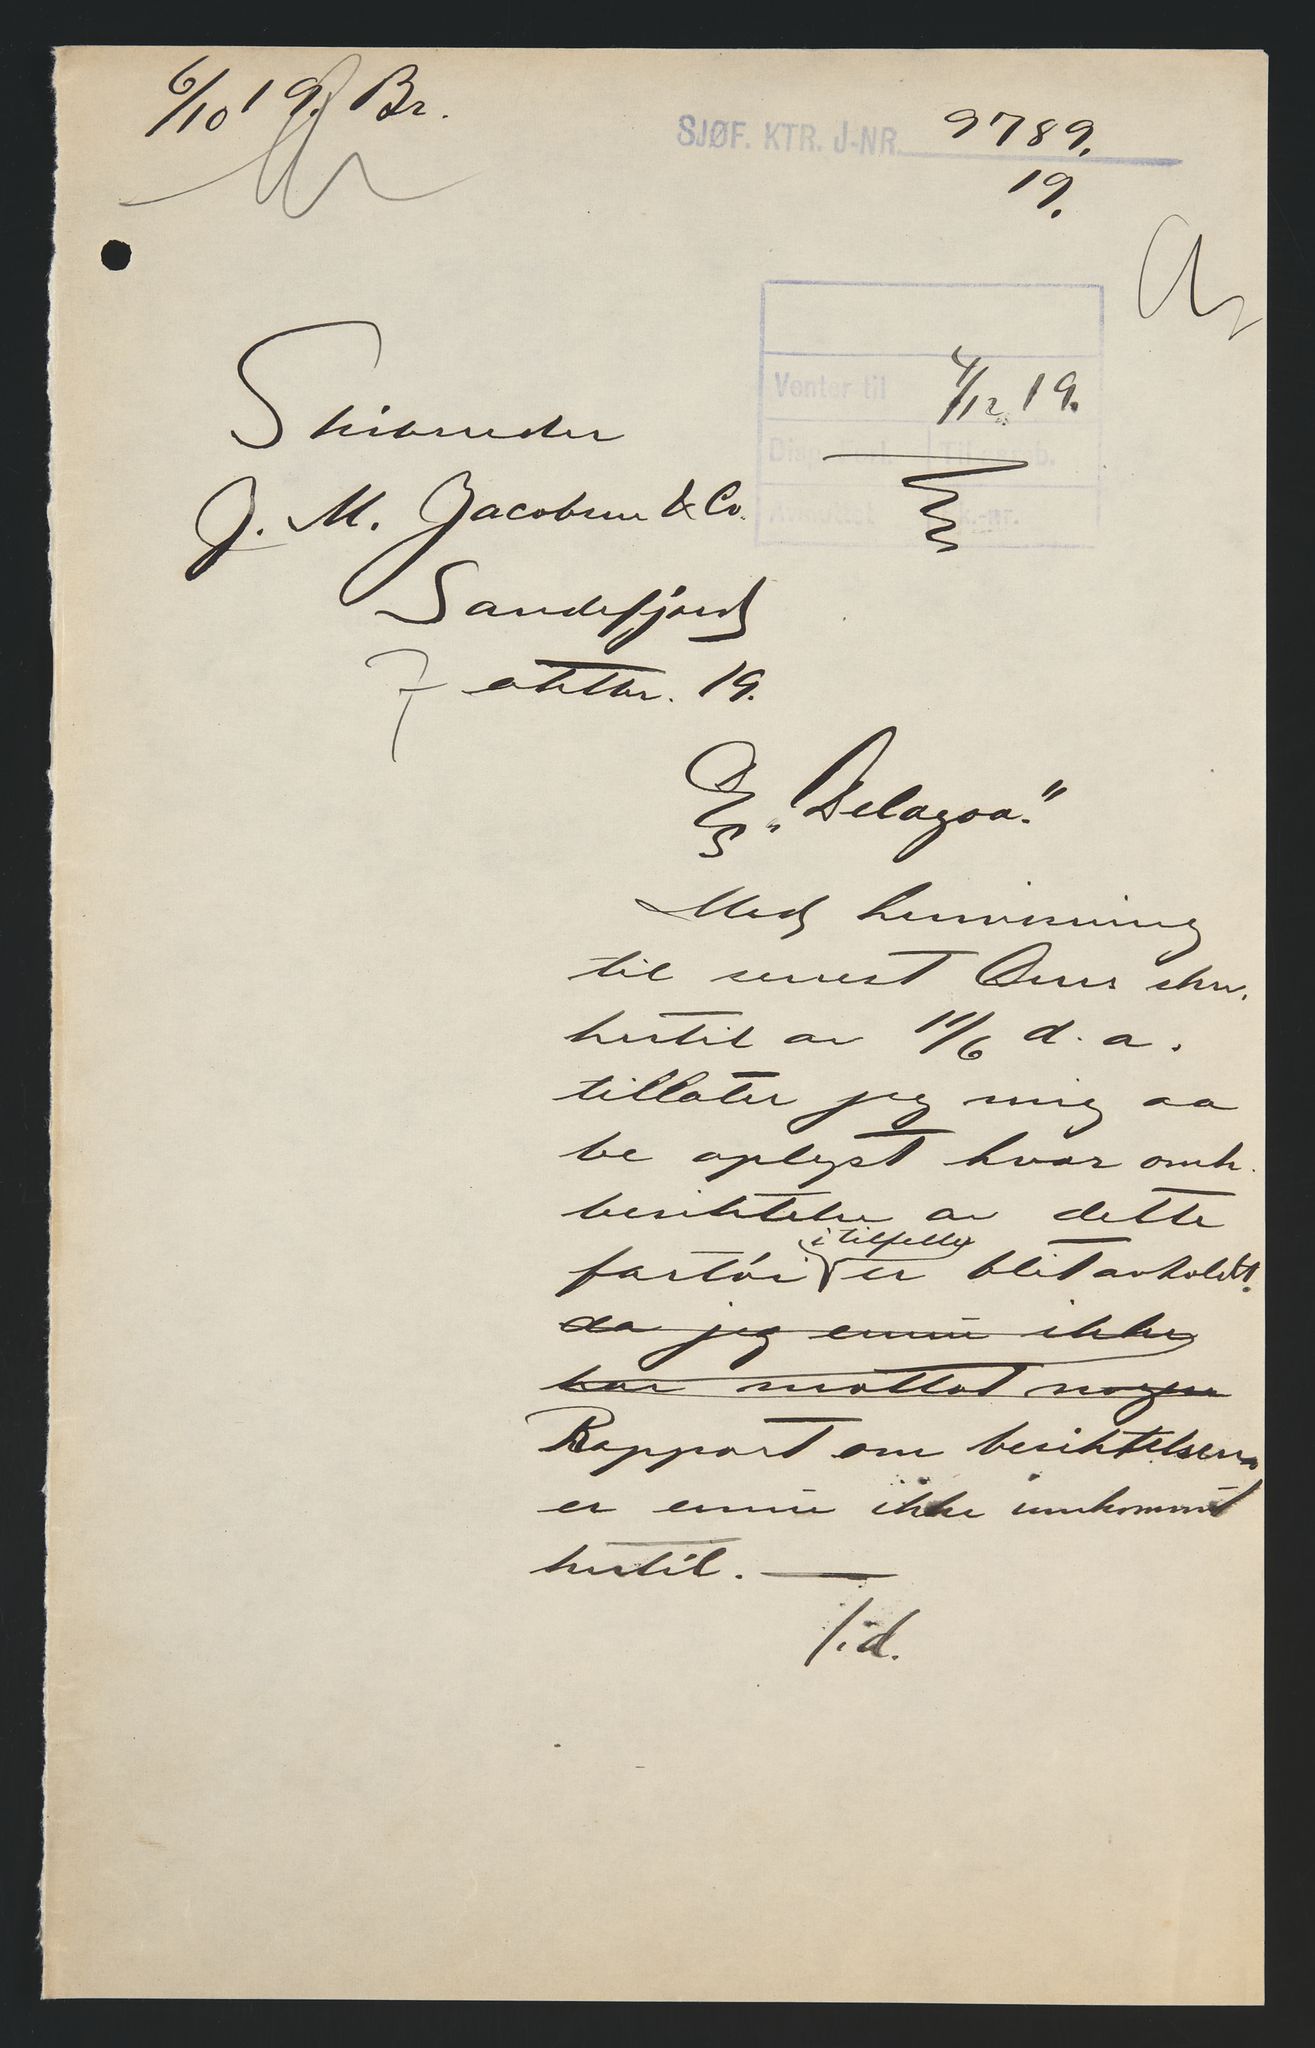 6/10 19. Br.
SJØF. KTR. J-NR. 9789.
19.
Venter til 4/12 19.
Skibsreder
J. M. Jacobsen & Co.
Sandefjord
7 oktbr. 19.
D/S „Delagoa."
Med henvisning
til senest Deres skr.
hertil av 11/6 d. a.
tillater jeg mig aa
be oplyst hvor omh.
besiktelse av dette
fartøi i tilfelle er blit avholdt.
da jeg ennu ikke
har mottat nogen
Rapport om besiktelsen
er ennu ikke innkommet
hertil.